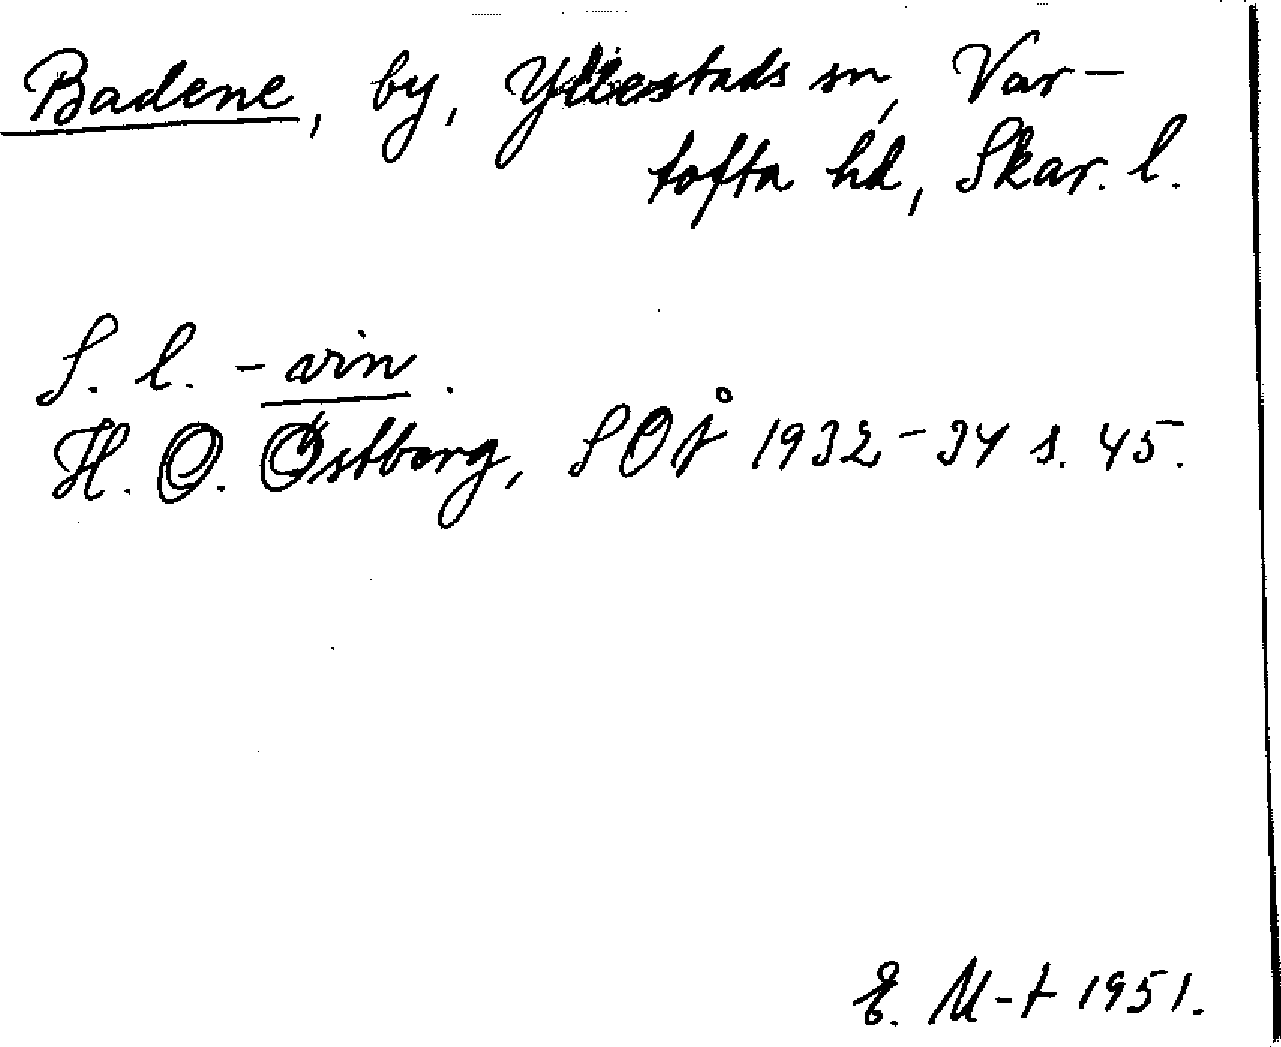 Badene, by, Yllestads sn, Var-
tofta hd, Skar. l.
S. l. -vin.
H. O. Östberg, SOÅ 1932-34 s. 45.
E. M-t 1951.